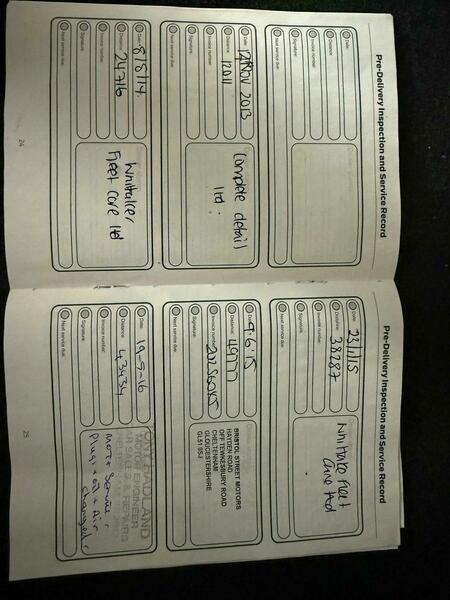 Pre-Delivery Inspection and Service Record
Date:
Distance:
Invoice number:
Signature:
Next service due:
Date: 12 Nov 2013
Distance: 12011
Invoice number:
Signature:
Next service due:
Complete detail
ltd.
Date: 8/8/14
Distance: 24716
Invoice number:
Signature:
Next service due:
Whittaker
Fleet Care ltd
24
Pre-Delivery Inspection and Service Record
Date: 23/1/15
Distance: 38287
Invoice number:
Signature:
Next service due:
Whittaker Fleet
Care ltd
Date: 9.6.15
Distance: 49777
Invoice number:
Signature:
Next service due:
BRISTOL STREET MOTORS
HAYDEN ROAD
OFF TEWKESBURY ROAD
CHELTENHAM
GLOUCESTERSHIRE
GL51 0SJ
Date: 19-9-16
Distance: 43434
Invoice number:
Signature:
Next service due:
BADLAND
ENGINEER
CAR SALE & REPAIRS
MOT + Service -
Plugs + oil + Air
changed
25